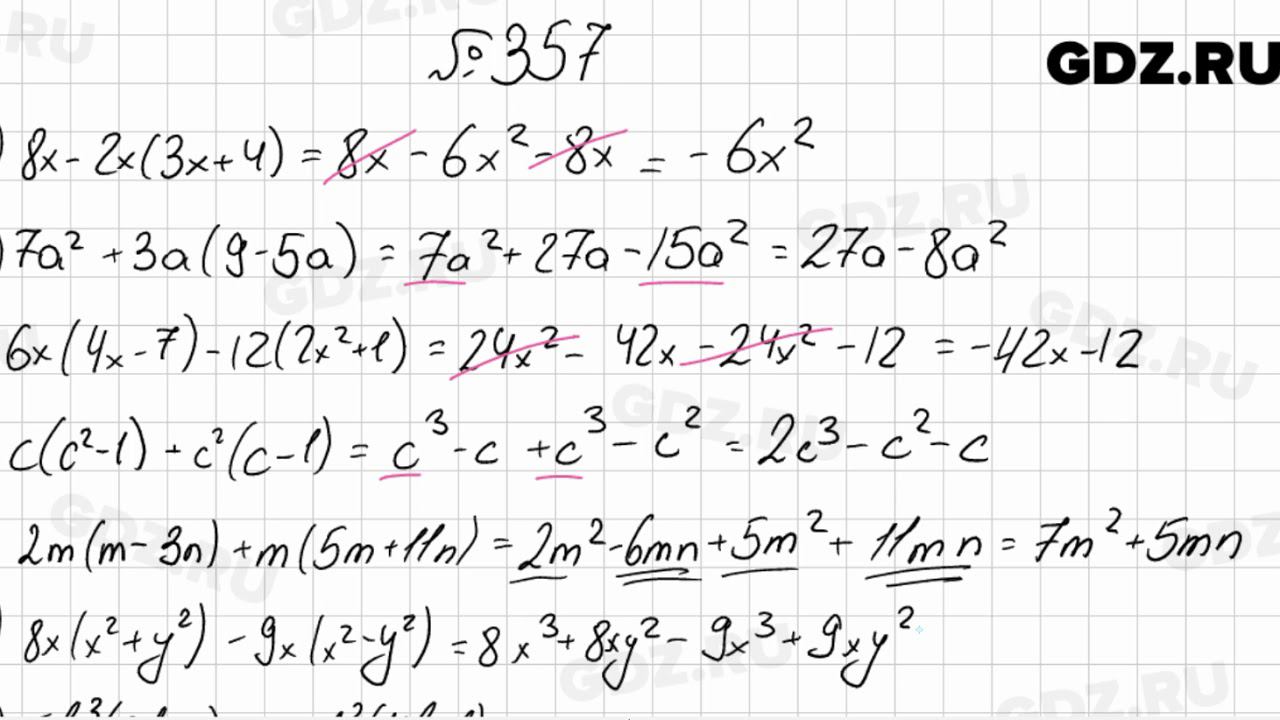 № 357
GDZ.RU
) 8x - 2x(3x+4) = 8x - 6x² - 8x = - 6x²
) 7a² + 3a(9-5a) = 7a² + 27a - 15a² = 27a - 8a²
6x(4x-7) - 12(2x²+1) = 24x² - 42x - 24x² - 12 = -42x - 12
c(c²-1) + c²(c-1) = c³ - c + c³ - c² = 2c³ - c² - c
2m(m-3n) + m(5m+11n) = 2m² - 6mn + 5m² + 11mn = 7m² + 5mn
) 8x(x²+y²) - 9x(x²-y²) = 8x³ + 8xy² - 9x³ + 9xy²